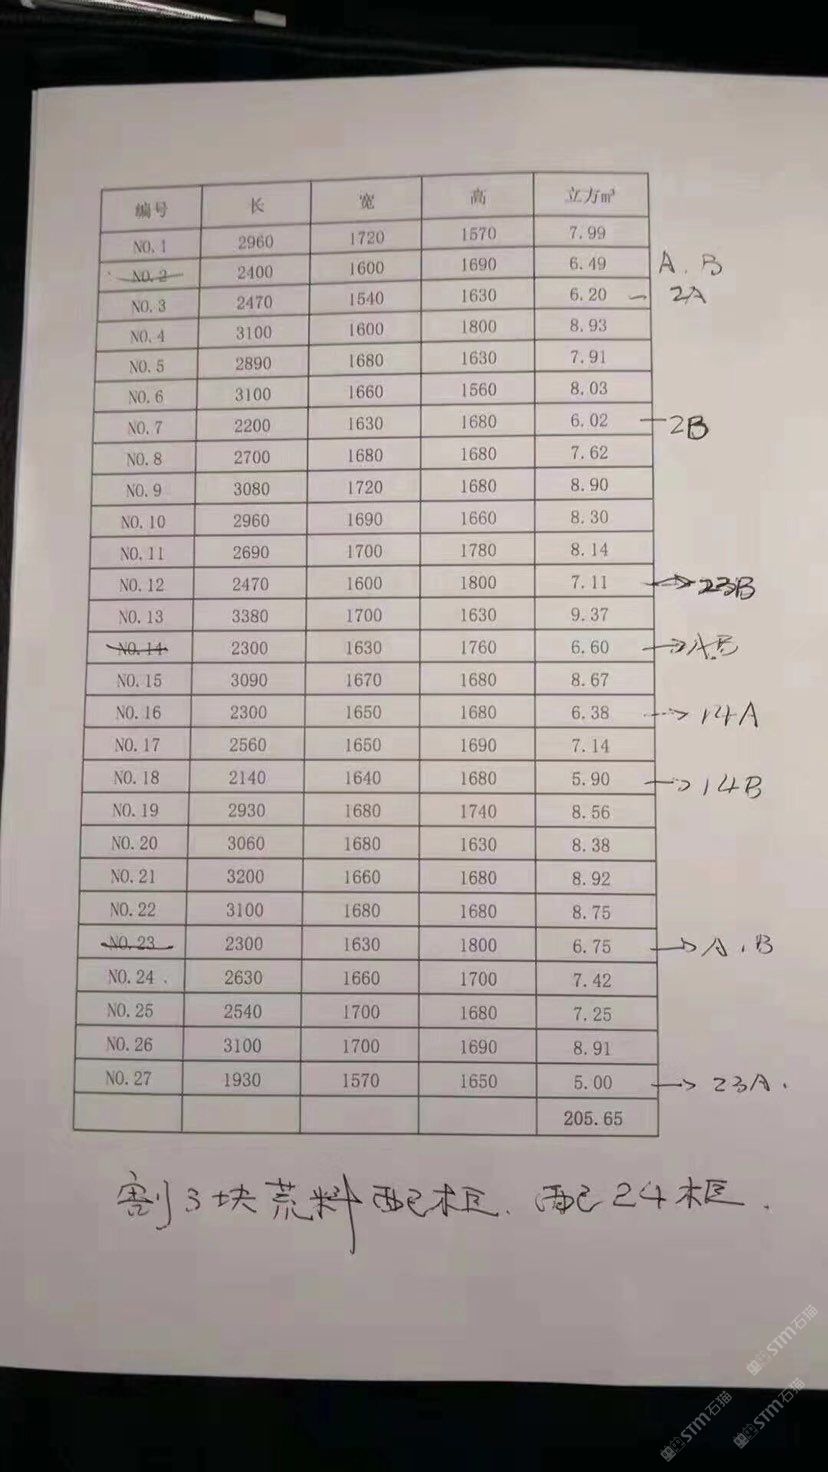 编号 长 宽 高 立方m³
NO.1 2960 1720 1570 7.99
NO.2 2400 1600 1690 6.49 A.B
NO.3 2470 1540 1630 6.20 - 2A
NO.4 3100 1600 1800 8.93
NO.5 2890 1680 1630 7.91
NO.6 3100 1660 1560 8.03
NO.7 2200 1630 1680 6.02 - 2B
NO.8 2700 1680 1680 7.62
NO.9 3080 1720 1680 8.90
NO.10 2960 1690 1660 8.30
NO.11 2690 1700 1780 8.14
NO.12 2470 1600 1800 7.11 → 23B
NO.13 3380 1700 1630 9.37
NO.14 2300 1630 1760 6.60 → A.B
NO.15 3090 1670 1680 8.67
NO.16 2300 1650 1680 6.38 → 14A
NO.17 2560 1650 1690 7.14
NO.18 2140 1640 1680 5.90 → 14B
NO.19 2930 1680 1740 8.56
NO.20 3060 1680 1630 8.38
NO.21 3200 1660 1680 8.92
NO.22 3100 1680 1680 8.75
NO.23 2300 1630 1800 6.75 → A.B
NO.24 2630 1660 1700 7.42
NO.25 2540 1700 1680 7.25
NO.26 3100 1700 1690 8.91
NO.27 1930 1570 1650 5.00 → 23A.
205.65
割3块荒料配柜. 配24柜.
STM石猫
STM石猫
STM石猫